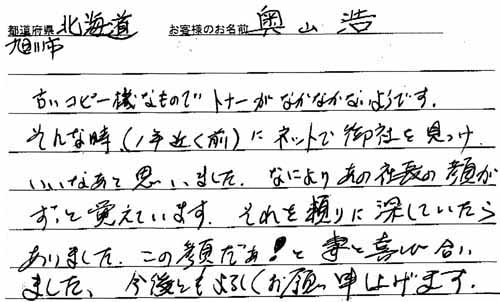 都道府県 北海道 お客様のお名前 奥山 浩
旭川市
古いコピー機なもので トナーが なかなかないようです.
そんな時、(1年近く前) に ネットで 御社を 見つけ.
いいなあと 思いました. なにより あの 社長の 顔が
ずっと 覚えています. それを 頼りに 深していたら
ありました. この 顔だぁ!と 妻と 喜び 合い
ました、 今後とも よろしくお願い 申し上げます.